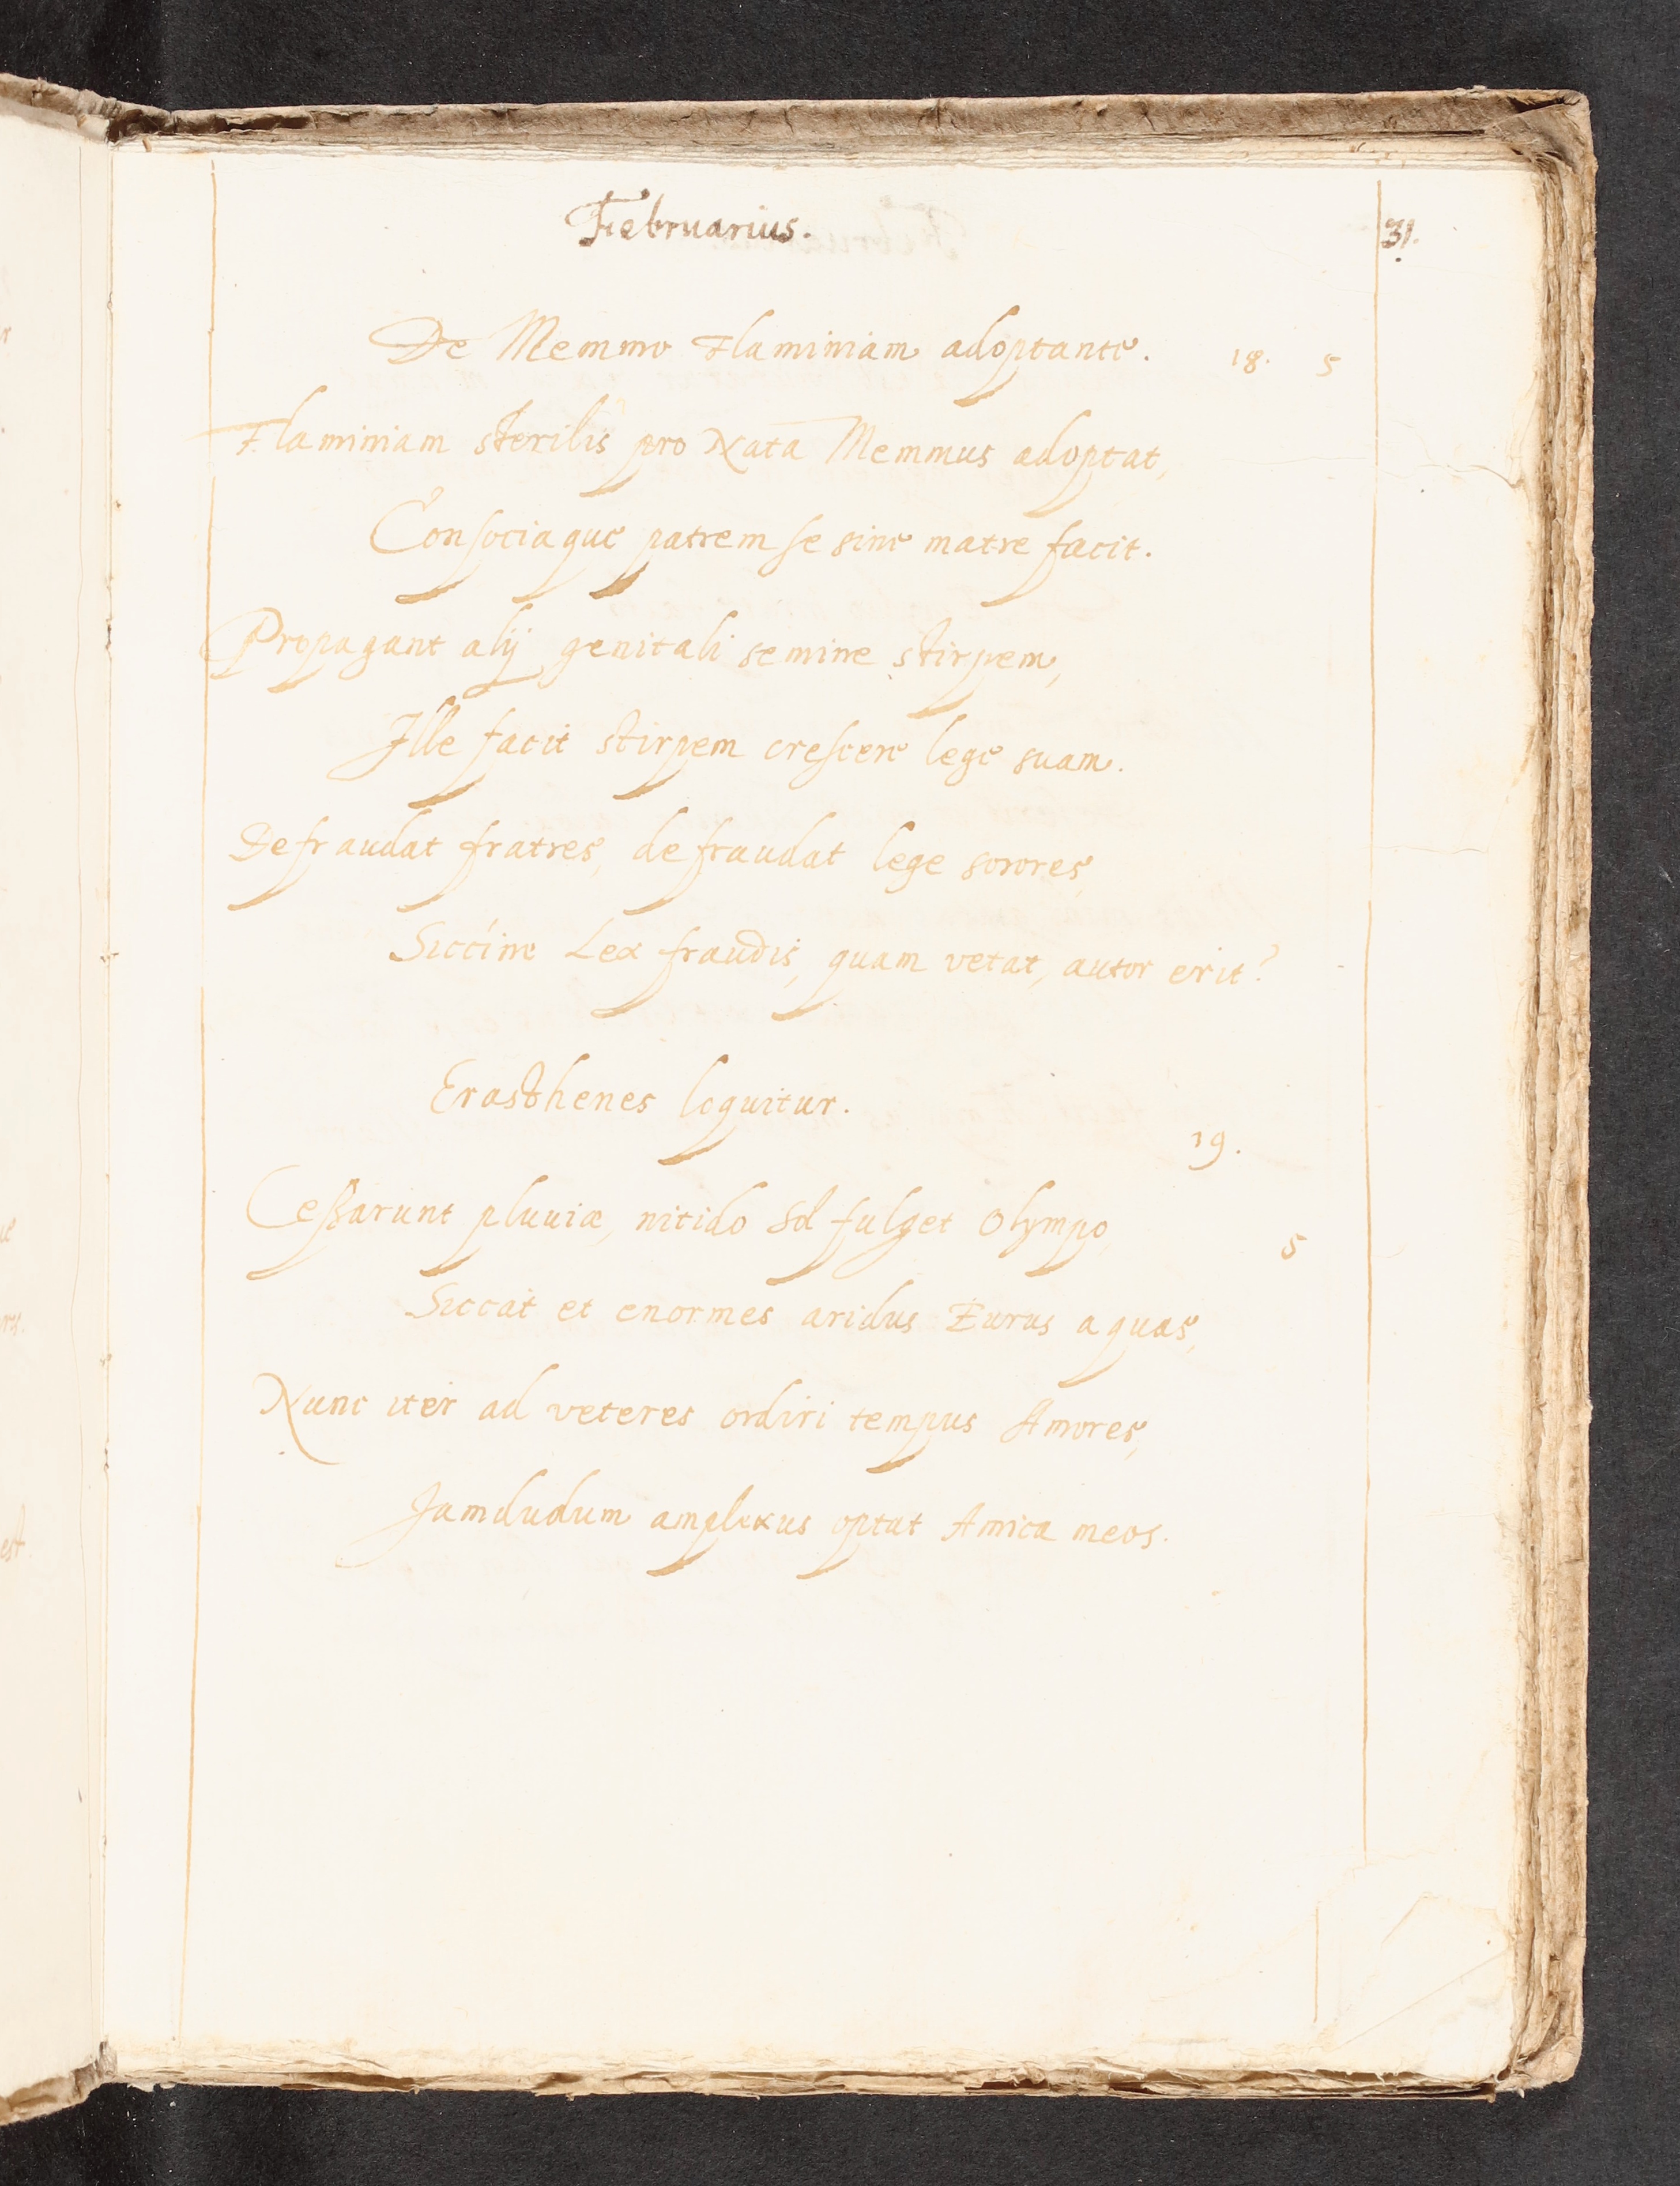 Februarius. 31.
De Memmo Flaminiam adoptante. 18. 5
Flaminiam sterilis pro Nata Memmus adoptat,
Consociaque patrem se sine matre facit.
Propagant alij genitali semine stirpem,
Ille facit stirpem crescere lege suam.
Defraudat fratres, defraudat lege sorores,
Siccine Lex fraudis, quam vetat, autor erit?
Erasthenes loquitur.
19.
Cessarunt pluuiæ, nitido Sol fulget Olympo, 5
Siccat et enormes aridus Eurus aquas,
Nunc iter ad veteres ordiri tempus Amores,
Jamdudum amplexus optat Amica meos.